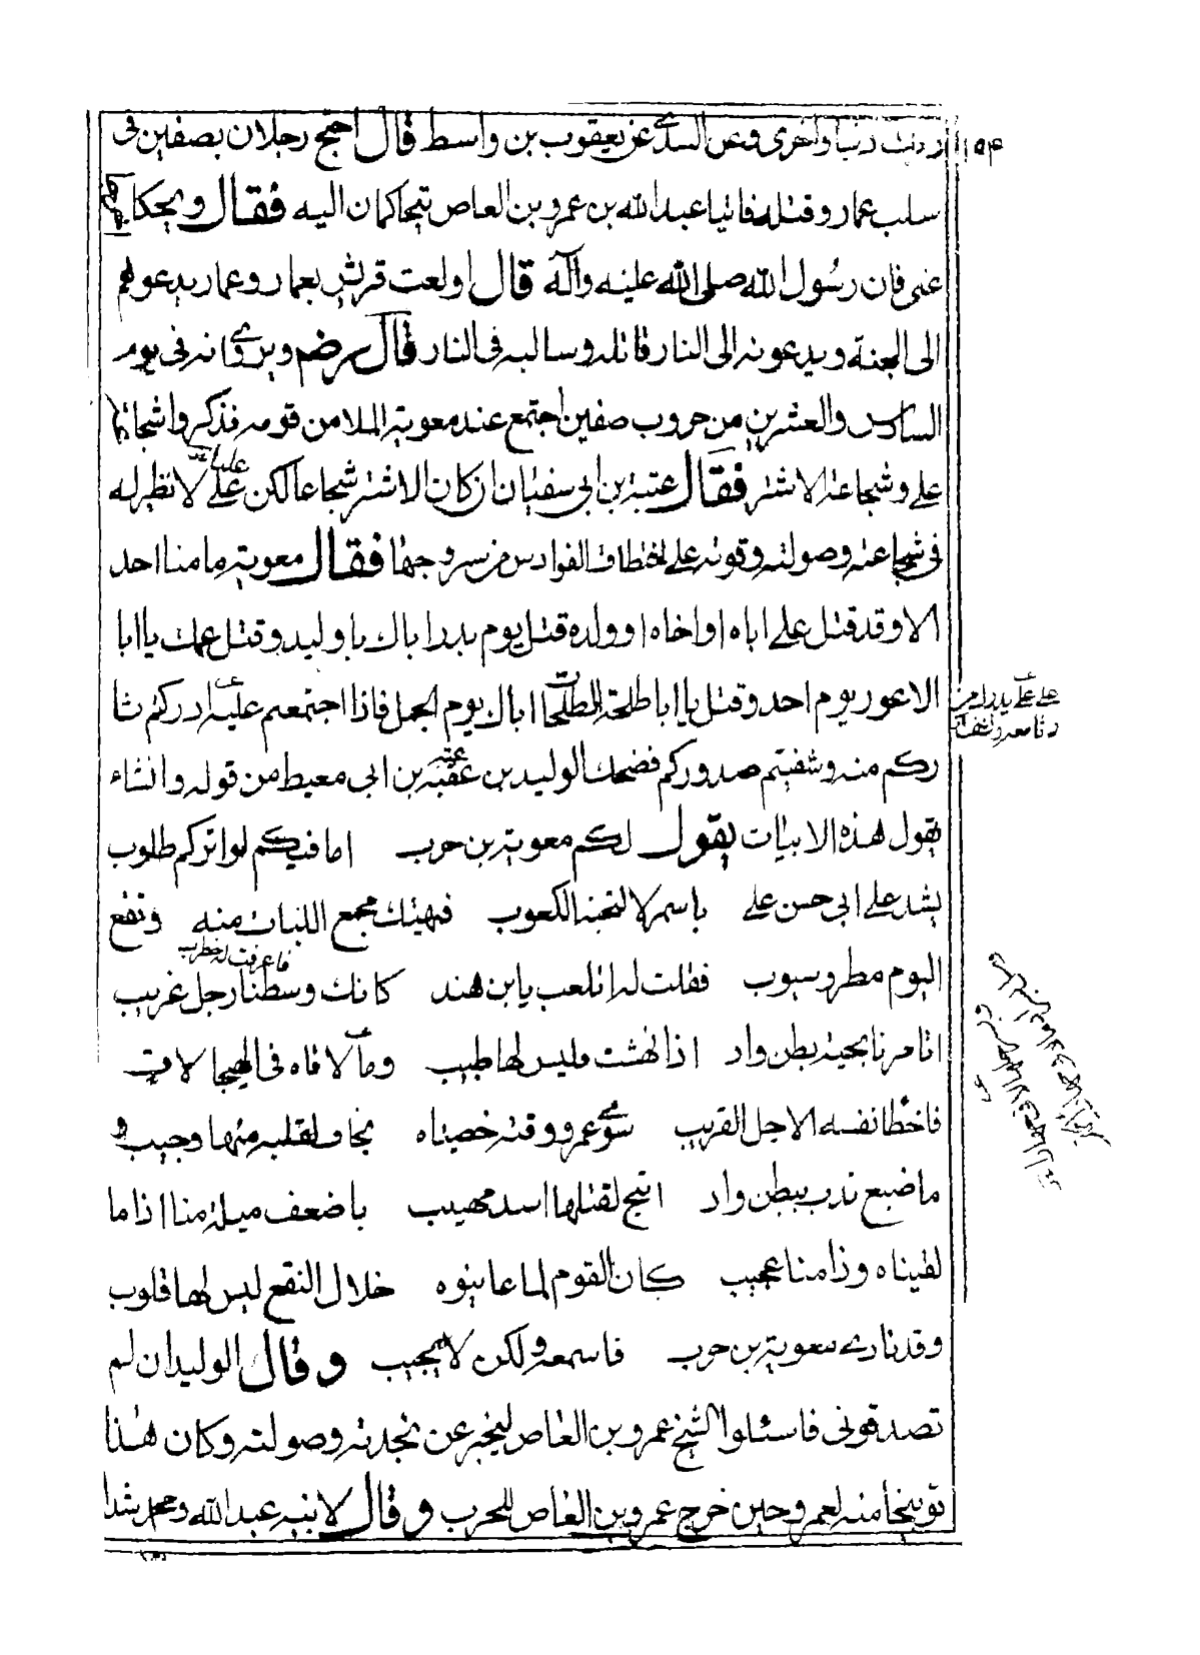 دنيا واخرى وعن السدي عن يعقوب بن واسط قال احتج رجلان بصفين فى
سلب عمار وقتله فاتيا عبد الله بن عمرو بن العاص يتحاكمان اليه فقال ويحكما
عنى فان رسول الله صلى الله عليه وآله قال اولعت قريش بعمار وعمار يدعوهم
الى الجنة ويدعونه الى النار قاتله وسالبه فى النار قال رضه ويروى انه فى يوم
السادس والعشرين من حروب صفين اجتمع عند معوية الملا من قومه فذكروا شجاعة
على وشجاعة الاشتر فقال عتبة بن ابى سفيان ان كان الاشتر شجاعا لكن على لا نظير له
فى شجاعته وصولته وقوته على اختطاف الفوارس من سروجها فقال معوية ما منا احد
الا وقد قتل على اباه او اخاه او ولده قتل يوم بدر اباك يا وليد وقتل عمك يا ابا
الاعور يوم احد وقتل يا ابا طلحة الطلحات اباك يوم الجمل فاذا اجتمعتم عليه ادركتم ثا
ركم منه وشفيتم صدوركم فضحك الوليد بن عقبة بن ابى معيط من قوله وانشاء
يقول هذه الابيات يقول لكم معوية بن حرب اما فيكم لواتركم طلوب
يشد على ابى حسن على باسمر لا تهجنه الكعوب فيهتك مجمع اللبات منه ونقع
اليوم مطر وسبوب فقلت له اتلعب يا بن هند كانك وسطنا رجل غريب
اتامرنا بحية بطن واد اذا نهشت فليس لها طبيب وما لاقاه فى الهيجا لاق
فاخطا نفسه الاجل القريب سوى عمرو وقته خصيتاه نجا ولقلبه منها وجيب و
ما ضبع تدب ببطن واد اتيح لقتلها اسد مهيب باضعف ميلة منا اذا ما
لقيناه وذا منا عجيب كان القوم لما عاينوه خلال النقع ليس لها قلوب
وقد نادى معوية بن حرب فاسمعه ولكن لا يجيب وقال الوليد ان لم
تصدقونى فاسئلوا الشيخ عمرو بن العاص ليخبر عن نجدته وصولته وكان هذا
توبيخا منه لعمرو حين خرج عمرو بن العاص للحرب وقال لابنيه عبد الله ومحمد شدا